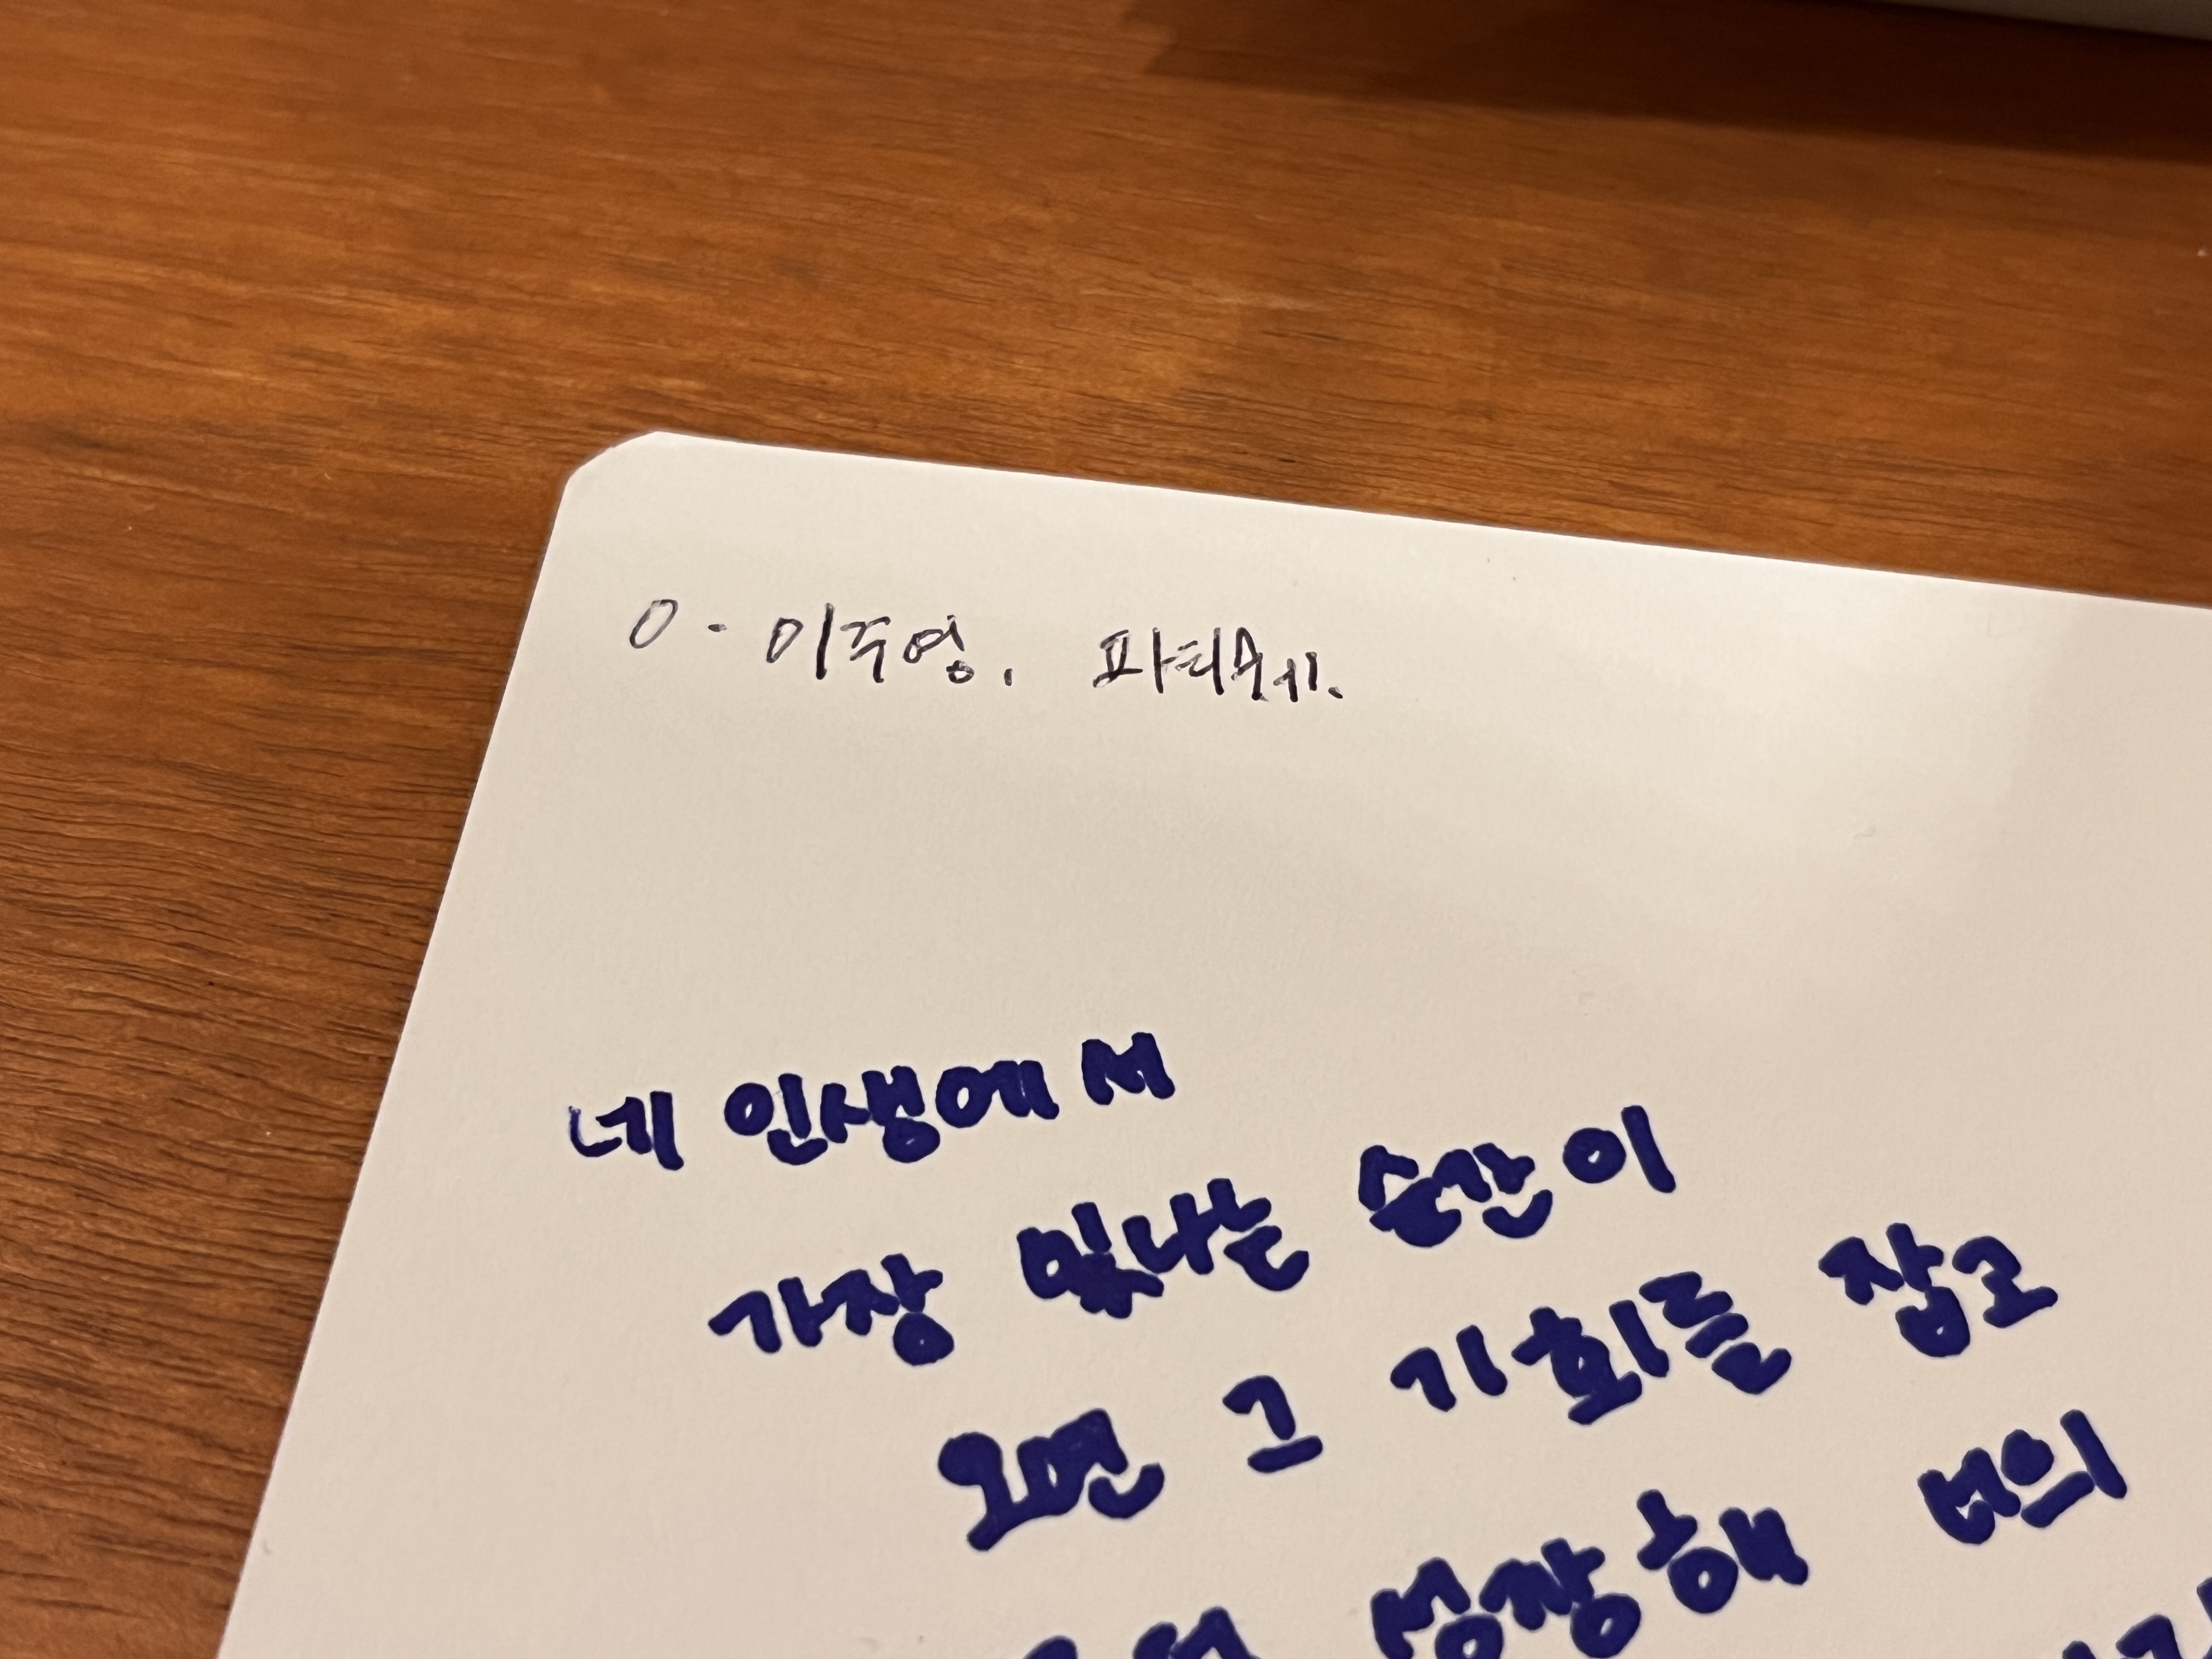 0. 이주영. 파티쉐.
네 인생에서
가장 빛나는 순간이
오면 그 기회를 잡고
성장해 너의